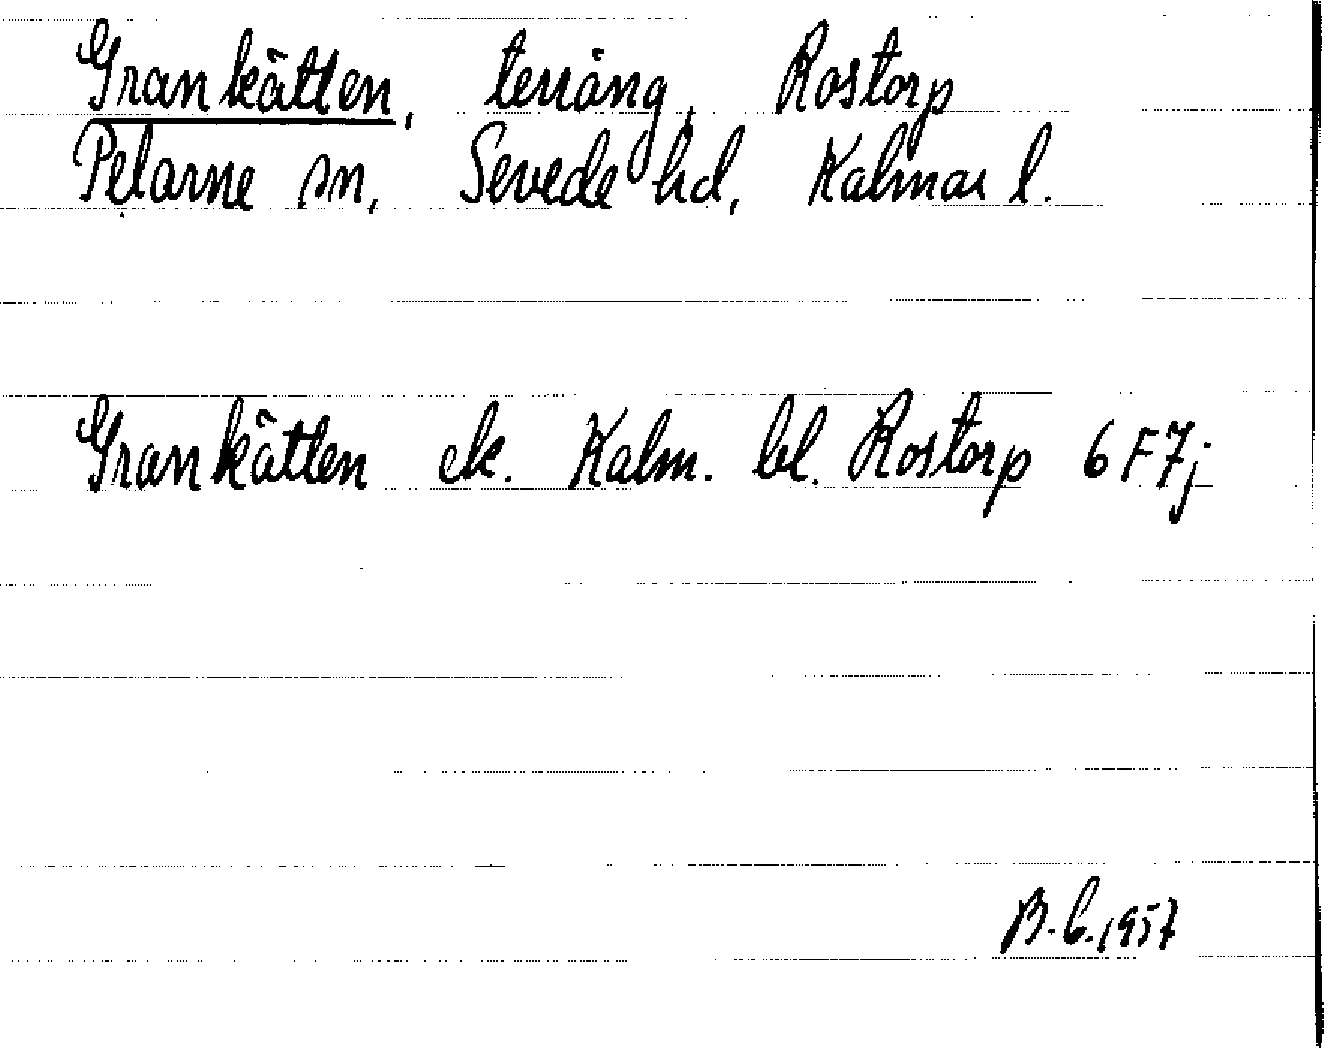 Grankätten, terräng, Rostorp
Pelarne sn, Sevede hd, Kalmar l.
Grankätten ek. Kalm. bl. Rostorp 6F7j
B.C. 1957